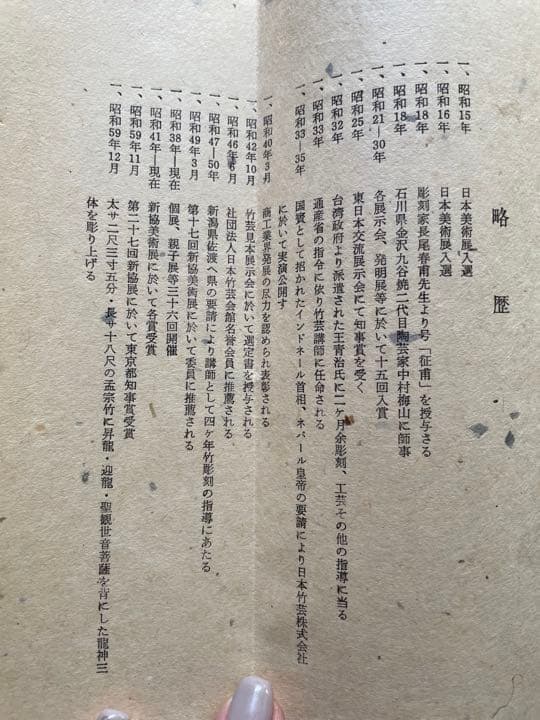 略歴
一、昭和15年 日本美術展入選
一、昭和16年 日本美術展入選
一、昭和18年 彫刻家長尾春甫先生より号「征甫」を授与さる
一、昭和18年 石川県金沢九谷焼二代目陶芸家中村梅山に師事
一、昭和21―30年 各展示会、発明展等に於いて十五回入賞
一、昭和25年 東日本交流展示会にて知事賞を受く
一、昭和32年 台湾政府より派遣された王青治氏に二ヶ月余彫刻、工芸その他の指導に当る
一、昭和33年 通産省の指令に依り竹芸講師に任命される
一、昭和33―35年 国賓として招かれたインドネール首相、ネパール皇帝の要請により日本竹芸株式会社
に於いて実演公開す
一、昭和40年3月 商工業界発展の尽力を認められ表彰される
一、昭和42年10月 竹芸見本展示会に於いて選定書を授与される
一、昭和46年6月 社団法人日本竹芸会館名誉会員に推薦される
一、昭和47―50年 新潟県佐渡へ県の要請により講師として四ヶ年竹彫刻の指導にあたる
一、昭和49年3月 第十七回新協美術展に於いて委員に推薦される
一、昭和38年―現在 個展、親子展等三十六回開催
一、昭和41年―現在 新協美術展に於いて各賞受賞
一、昭和59年11月 第二十七回新協展に於いて東京都知事賞受賞
一、昭和59年12月 太サ二尺三寸五分・長サ十八尺の孟宗竹に昇龍・迎龍・聖観世音菩薩を背にした龍神三
体を彫り上げる